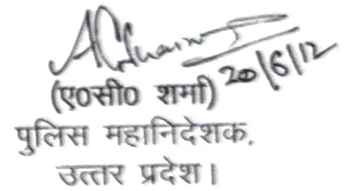 20/6/12
(ए0सी0 शर्मा)
पुलिस महानिदेशक,
उत्तर प्रदेश।